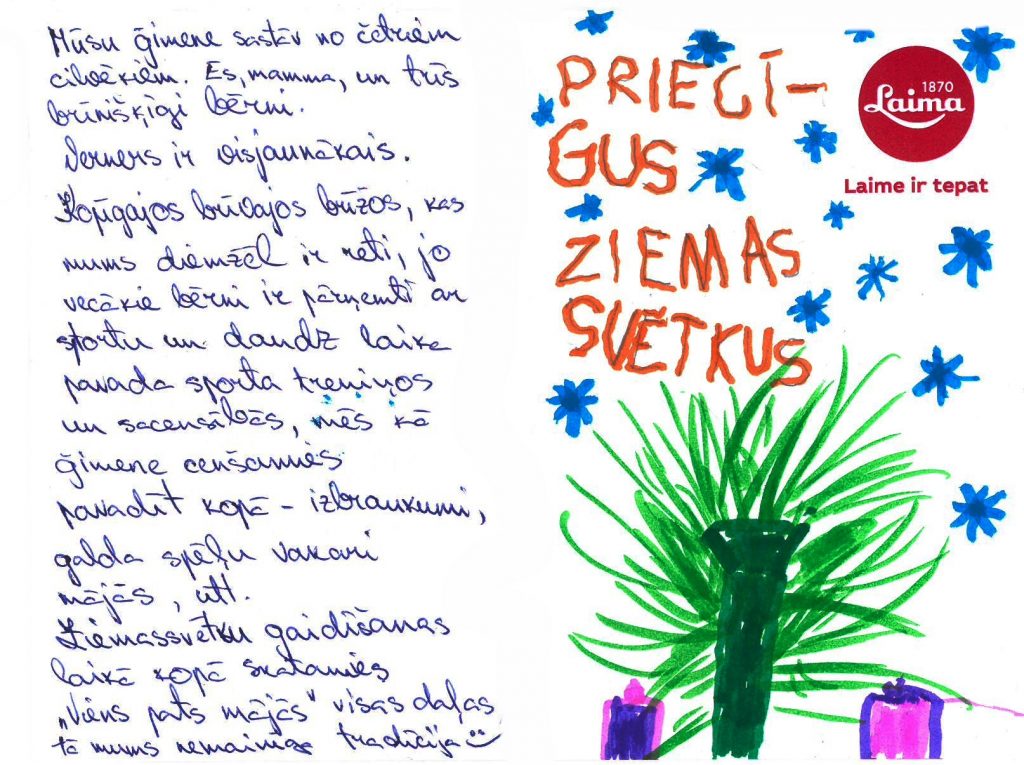 Mūsu ģimene sastāv no četriem
cilvēkiem. Es, mamma, un trīs
brīnišķīgi bērni.
Verners ir visjaunākais.
Kopīgajos brīvajos brīžos, kas
mums diemžēl ir reti, jo
vecākie bērni ir pārņemti ar
sportu un daudz laika
pavada sporta treniņos
un sacensībās, mēs kā
ģimene cenšamies
pavadīt kopā - izbraukumi,
galda spēļu vakari
mājās, utt.
Ziemassvētku gaidīšanas
laikā kopā skatamies
„Viens pats mājās" visas daļas
tā mums nemainīga tradīcija
PRIECĪ-
GUS
ZIEMAS
SVĒTKUS
1870
Laima
Laime ir tepat